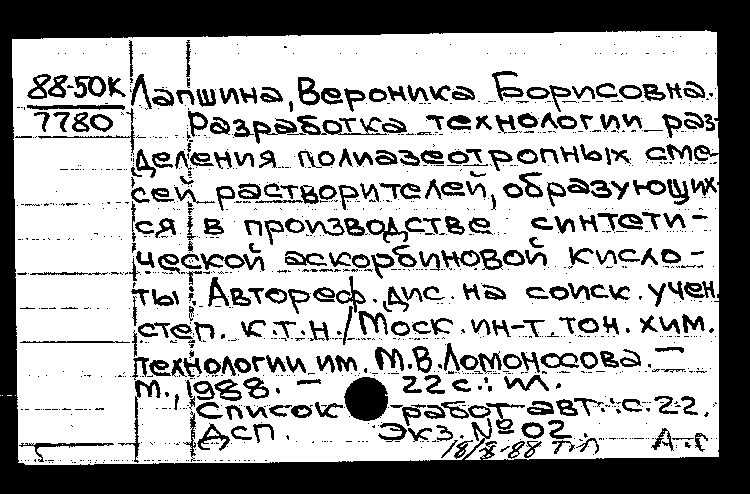 88-50К
7780
Лапшина, Вероника Борисовна.
Разработка технологии раз-
деления полиазеотропных сме-
сей растворителей, образующих-
ся в производстве синтети-
ческой аскорбиновой кисло-
ты. Автореф. дис. на соиск. учен.
степ. к.т.н./Моск. ин-т. тон. хим.
технологии им. М.В.Ломоносова. —
М., 1988. — 22 с.: ил.
Список работ авт.: с. 22.
Дсп. Экз. № 02.
А.г